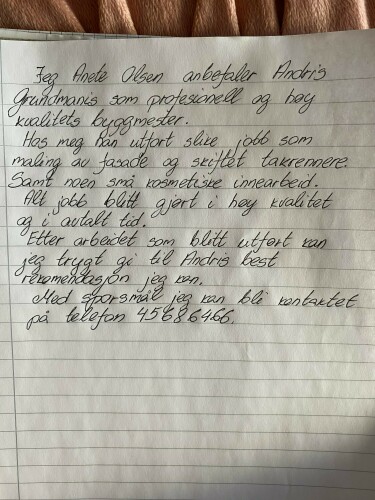 Jeg Anete Olsen anbefaler Andris
Grundmanis som profesionell og høy
kvalitets byggmester.
Hos meg han utført slike jobb som
maling av fasade og skiftet takrennere.
Samt noen små kosmetiske innearbeid.
Alt jobb blitt gjort i høy kvalitet
og i avtalt tid.
Etter arbeidet som blitt utført kan
jeg trygt gi til Andris best
rekomendasjon jeg kan.
Med sporsmål jeg kan bli kontaktet
på telefon 45686466.